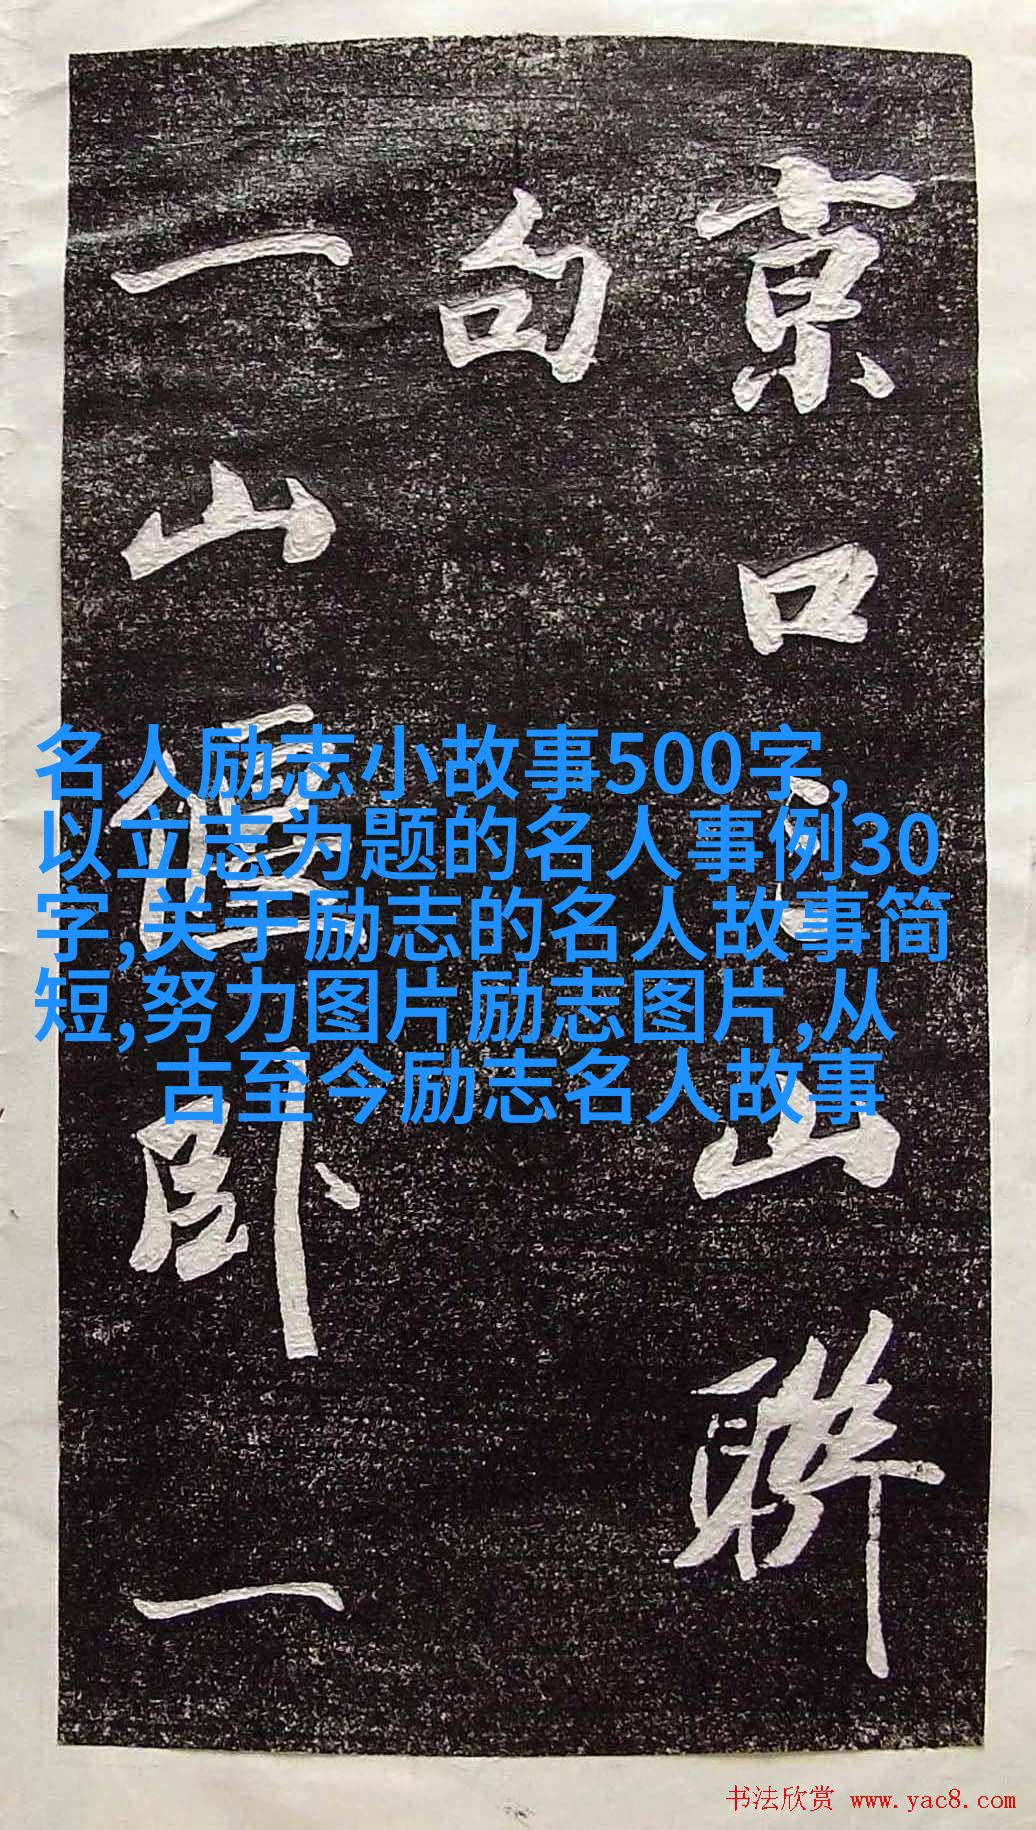 京口山聯
句
一山卧一
名人励志小故事500字,
以立志为题的名人事例30
字,关于励志的名人故事简
短,努力图片励志图片,从
古至今励志名人故事
书法欣赏 www.yac8.com